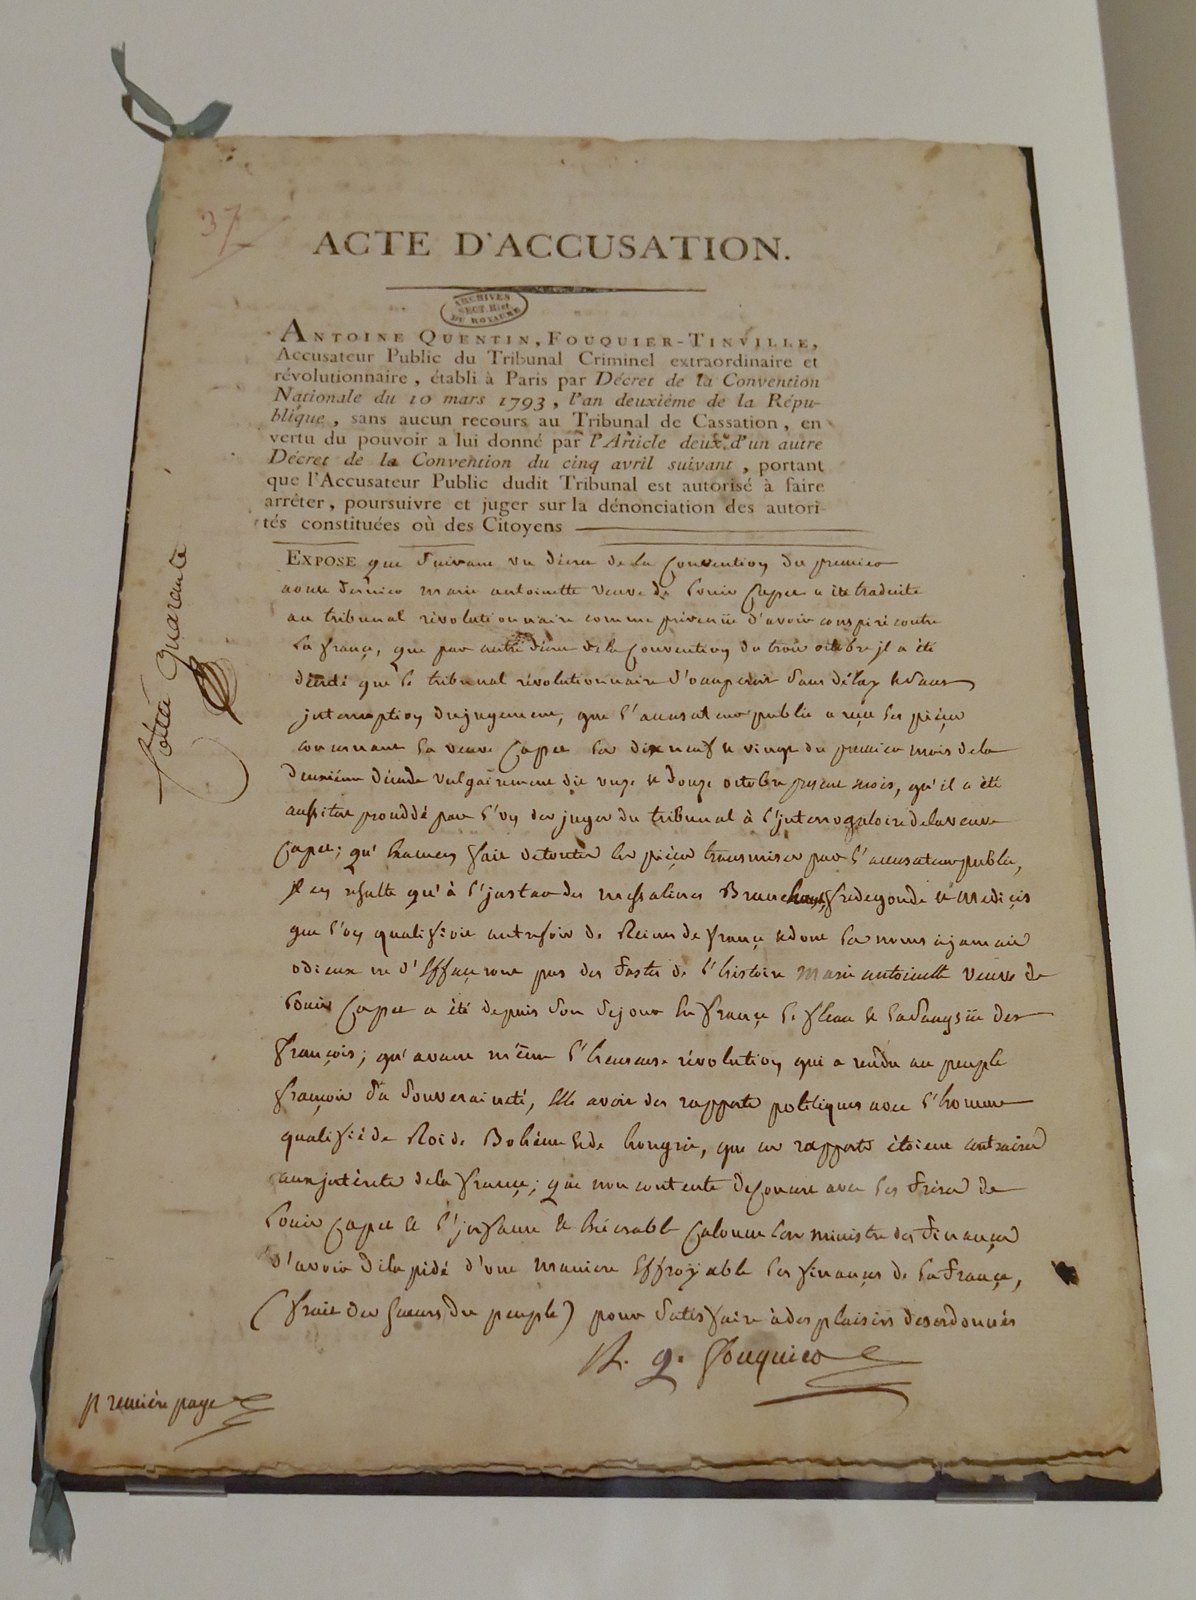 37
ACTE D'ACCUSATION.
ARCHIVES
SECT. Hist
DU ROYAUME
ANTOINE QUENTIN, FOUQUIER-TINVILLE,
Accusateur Public du Tribunal Criminel extraordinaire et
révolutionnaire, établi à Paris par Décret de la Convention
Nationale du 10 mars 1793, l'an deuxième de la Répu-
blique, sans aucun recours au Tribunal de Cassation, en
vertu du pouvoir a lui donné par l'Article deux d'un autre
Décret de la Convention du cinq avril suivant, portant
que l'Accusateur Public dudit Tribunal est autorisé à faire
arrêter, poursuivre et juger sur la dénonciation des autori-
tés constituées où des Citoyens
EXPOSE que suivant un décret de la Convention du premier
aoust dernier marie antoinette veuve de Louis Capet a été traduite
au tribunal révolutionnaire comme prévenüe d'avoir conspiré contre
la france, que par autre décret de la Convention du trois octobre il a été
décrété que le tribunal révolutionnaire s'occuperoit sans délay et sans
interruption du jugement, que l'accusateur public a reçu les pièces
concernant la veuve Capet les dix neuf et vingt du premier mois de la
deuxième décade vulgairement dit onze et douze octobre present mois, qu'il a été
aussitot procédé par l'un des juges du tribunal à l'interrogatoire de la veuve
Capet; qu'examen fait de toutes les pièces transmises par l'accusateur public,
il en résulte qu'à l'instar des messalines Brunehaut, fredegonde et Medicis
que l'on qualifioit autrefois de Reines de france et dont les noms à jamais
odieux ne s'effaceront pas des fastes de l'histoire marie antoinette veuve de
Louis Capet a été depuis son séjour en france le fleau et la sangsüe des
françois; qu'avant même l'heureuse révolution qui a rendu au peuple
françois sa souveraineté, elle avoit des rapports politiques avec l'homme
qualifié de Roi de Bohême et de hongrie, que ces rapports étoient contraires
aux intérêts de la france; que non contente de concert avec les frères de
Louis Capet et l'infame et exécrable Calonne lors ministre des finances
d'avoir dilapidé d'une maniere effroyable les finances de la france,
(fruit des sueurs du peuple) pour satisfaire à des plaisirs desordonnés
Cotté Quarante
première page
A. q. fouquier